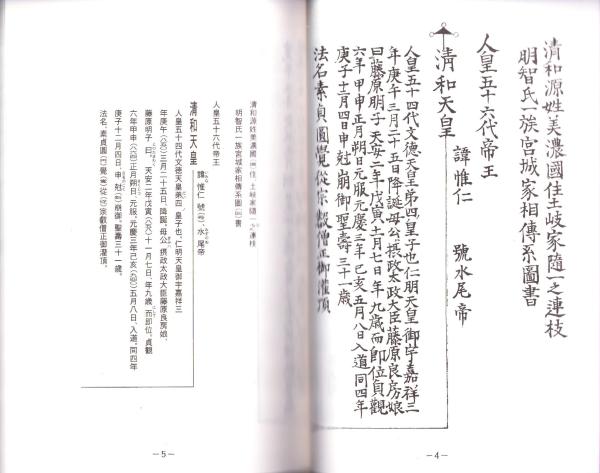 清和源姓美濃國住土岐家隨一之連枝
明智氏一族宮城家相傳系圖書
人皇五十六代帝王
清和天皇 諱惟仁 號水尾帝
人皇五十四代文德天皇第四皇子也仁明天皇御宇嘉祥三
年庚午三月二十五日降誕母公攝政太政大臣藤原良房娘
曰藤原明子天安二年戊寅十一月七日年九歳而即位貞觀
六年甲申正月朔日元服元慶三年己亥五月八日入道同四年
庚子十二月四日申尅崩御聖壽三十一歳
法名素貞圓覺從宗叡僧正御灌頂
－4－
清和源姓美濃國住土岐家隨一之連枝
明智氏一族宮城家相傳系圖書
人皇五十六代帝王
清和天皇 諱惟仁 號水尾帝
人皇五十四代文德天皇第四皇子也。仁明天皇御宇嘉祥三
年庚午三月二十五日、降誕。母公、摂政太政大臣藤原良房娘、
藤原明子曰。天安二年戊寅十一月七日、年九歳而即位。貞觀
六年甲申正月朔日、元服。元慶三年己亥五月八日、入道。同四年
庚子十二月四日、申尅崩御。聖壽三十一歳。
法名、素貞圓覺從宗叡僧正御灌頂。
－5－